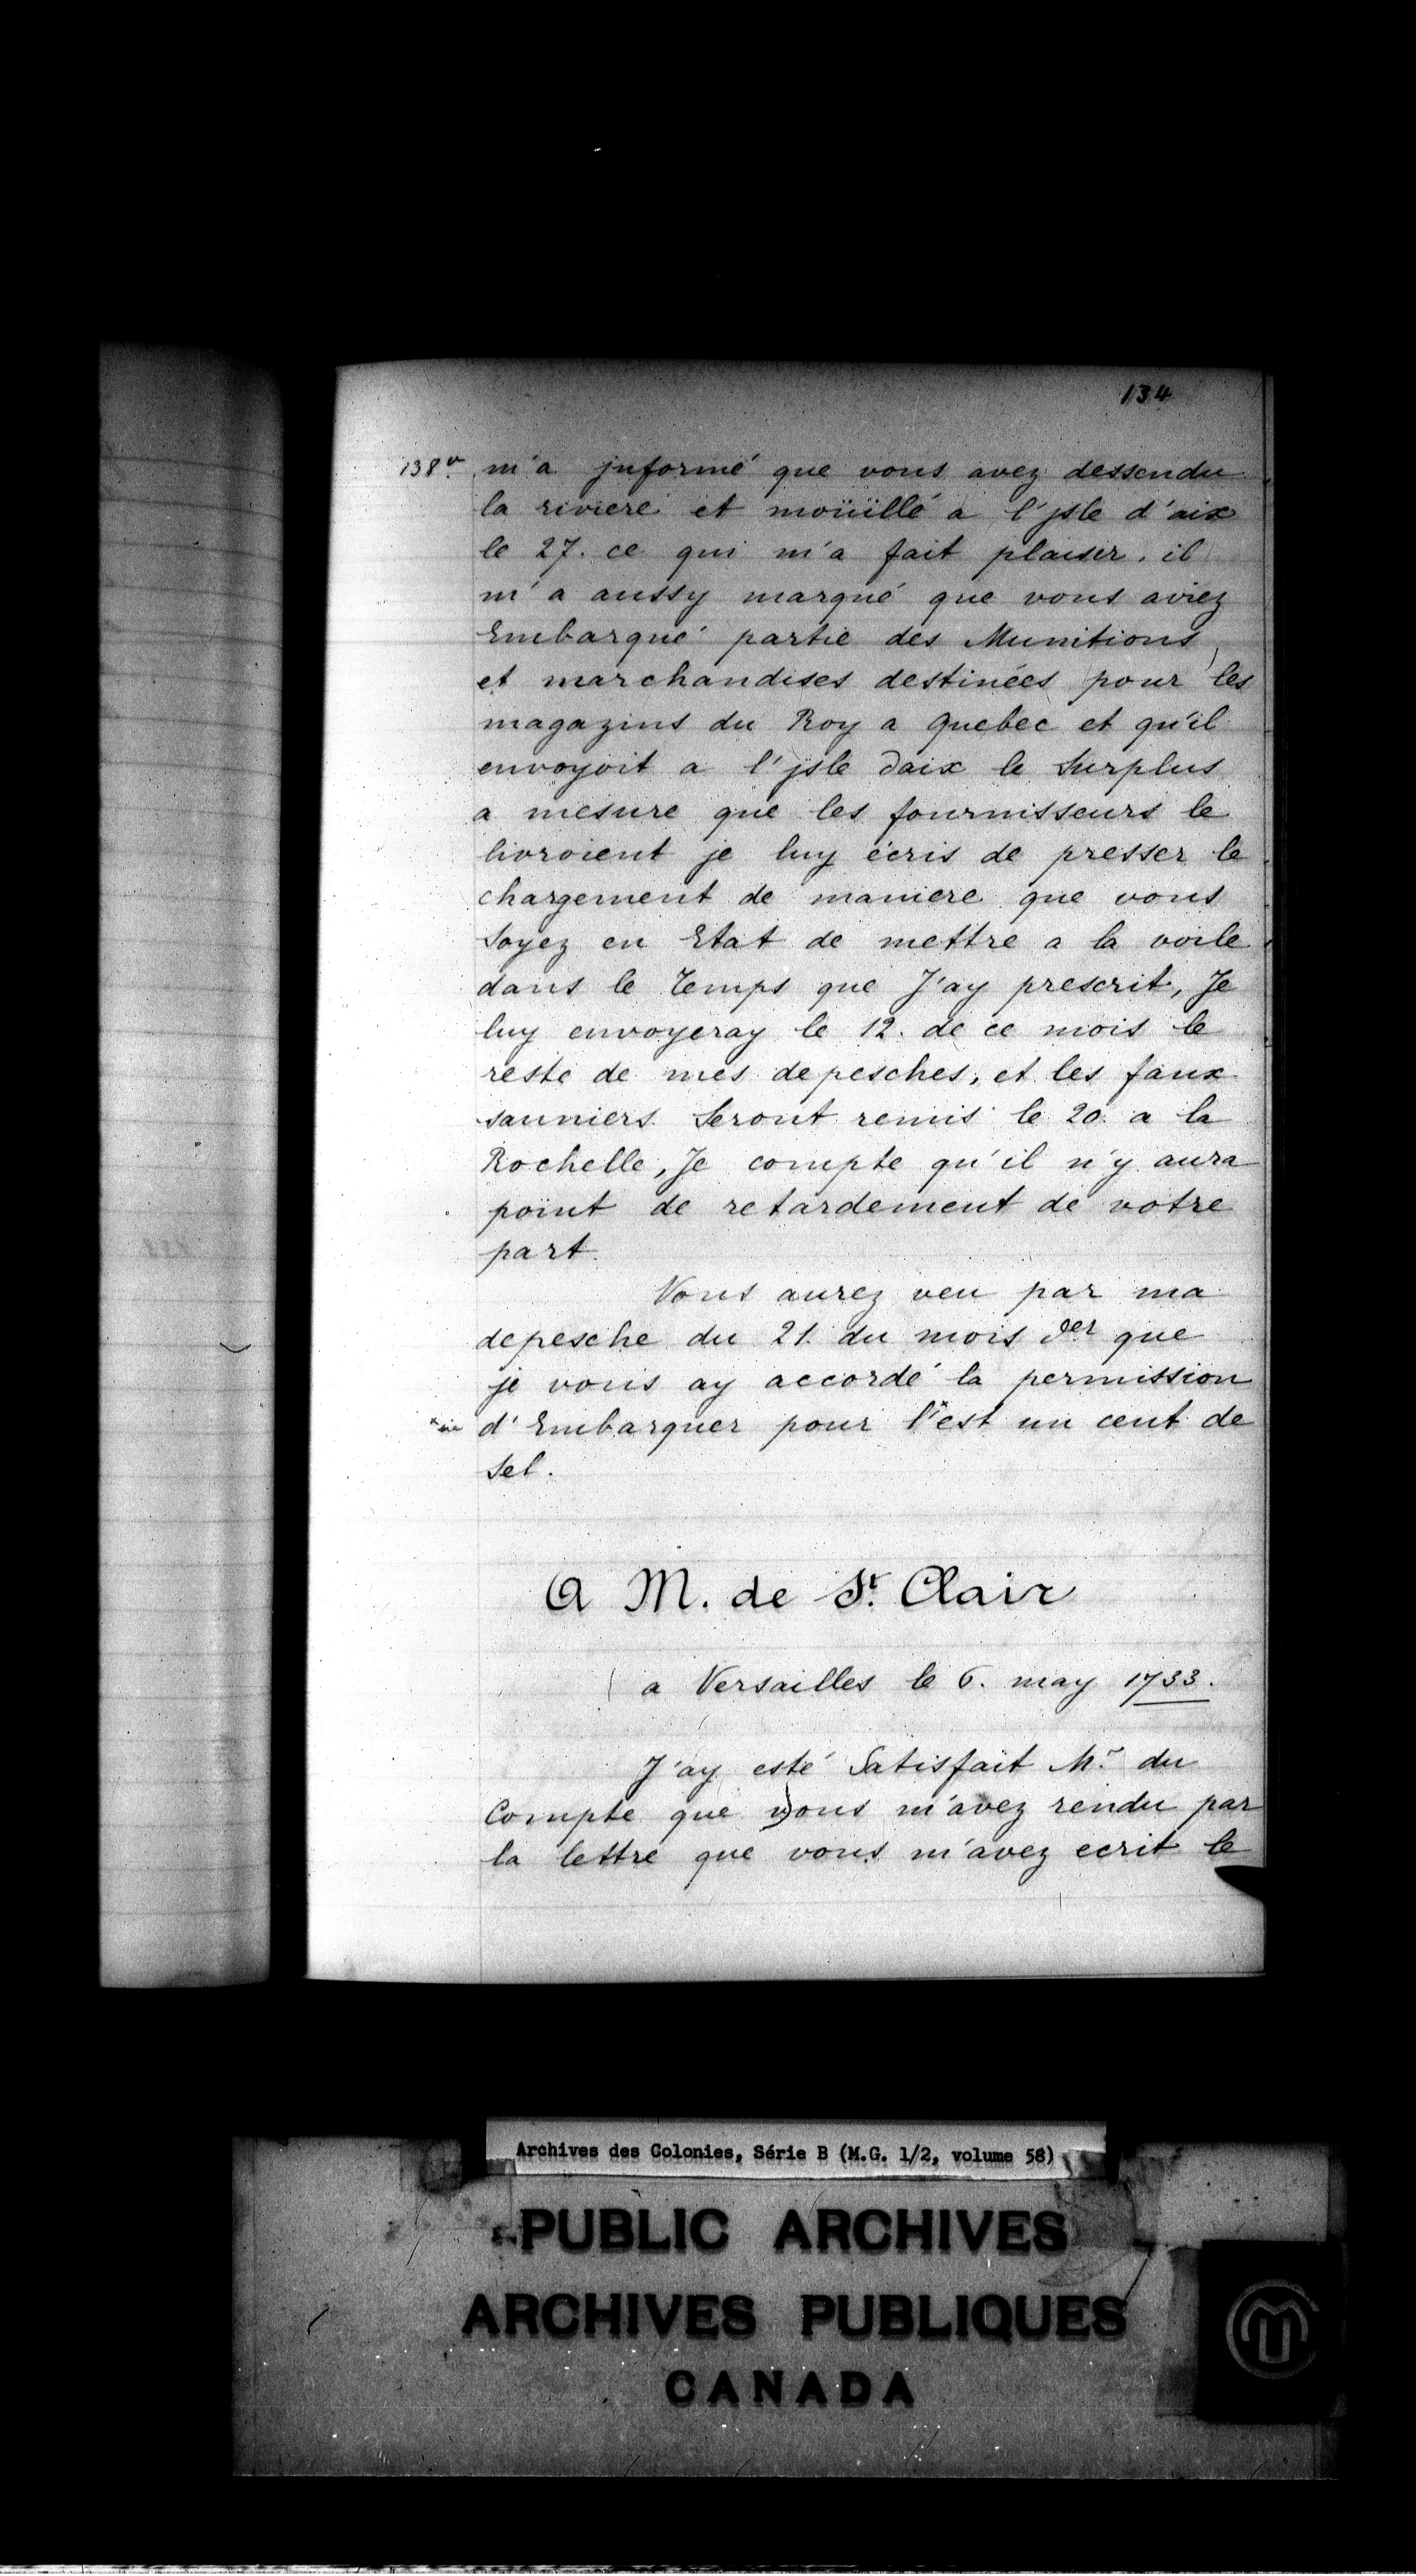 134
138v. m'a jnformé que vous avez dessendu
la riviere et moüillé a l'jsle d'aix
le 27. ce qui m'a fait plaisir. il
m'a aussy marqué que vous aviez
Embarqué partie des Munitions
et marchandises destinées pour les
magazins du Roy a Quebec et qu'il
envoyoit a l'jsle daix le Surplus
a mesure que les fournisseurs le
livroient je luy écris de presser le
chargement de maniere que vous
soyez en Etat de mettre a la voile
dans le temps que J'ay prescrit, Je
luy envoyeray le 12. de ce mois le
reste de mes depesches, et les faux
sauniers Seront remis le 20. a la
Rochelle, Je compte qu'il n'y aura
point de retardement de votre
part.
Vous aurez veu par ma
depesche du 21. du mois der que
je vous ay accordé la permission
d'Embarquer pour l'*est un cent de
Sel.
A M. de St. Clair
a Versailles le 6. may 1733.
J'ay esté Satisfait Mr. du
Compte que vous m'avez rendu par
la lettre que vous m'avez ecrit le
Archives des Colonies, Série B (M.G. 1/2, volume 58)
PUBLIC ARCHIVES
ARCHIVES PUBLIQUES
CANADA